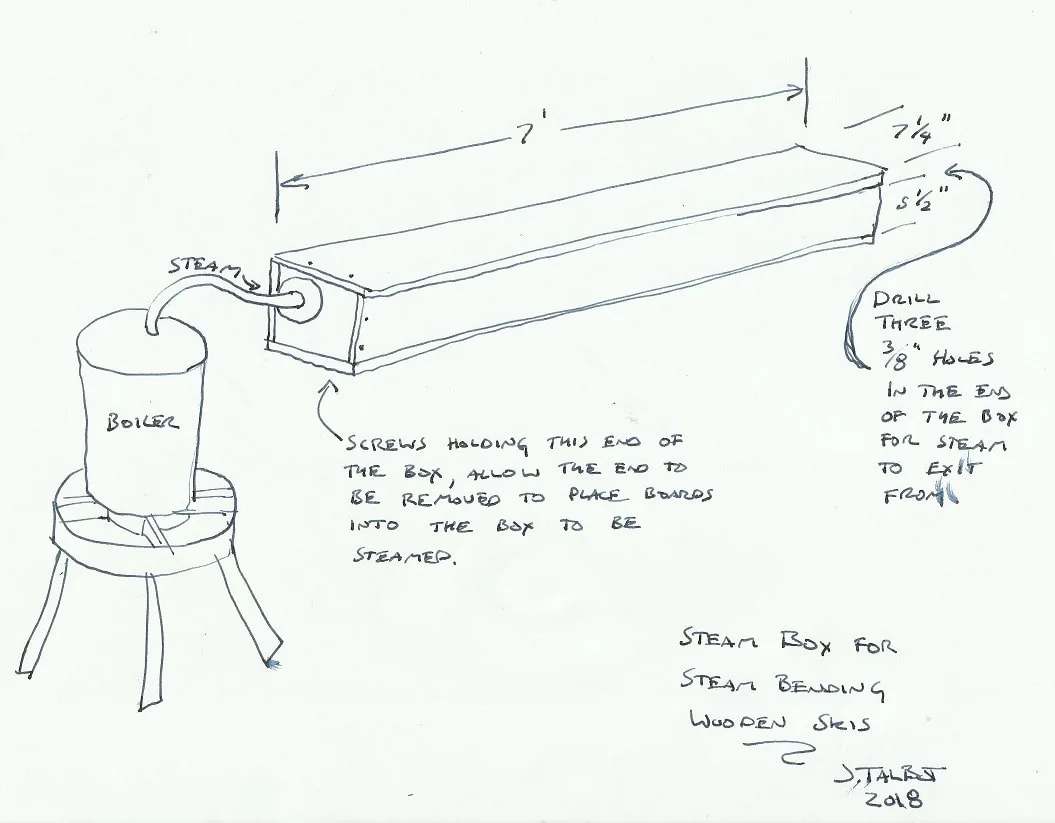 7'
7 1/4"
5 1/2"
STEAM
DRILL
THREE
3/8" HOLES
IN THE END
OF THE BOX
FOR STEAM
TO EXIT
FROM
BOILER
SCREWS HOLDING THIS END OF
THE BOX, ALLOW THE END TO
BE REMOVED TO PLACE BOARDS
INTO THE BOX TO BE
STEAMED.
STEAM BOX FOR
STEAM BENDING
WOODEN SKIS
J. TALBOT
2018